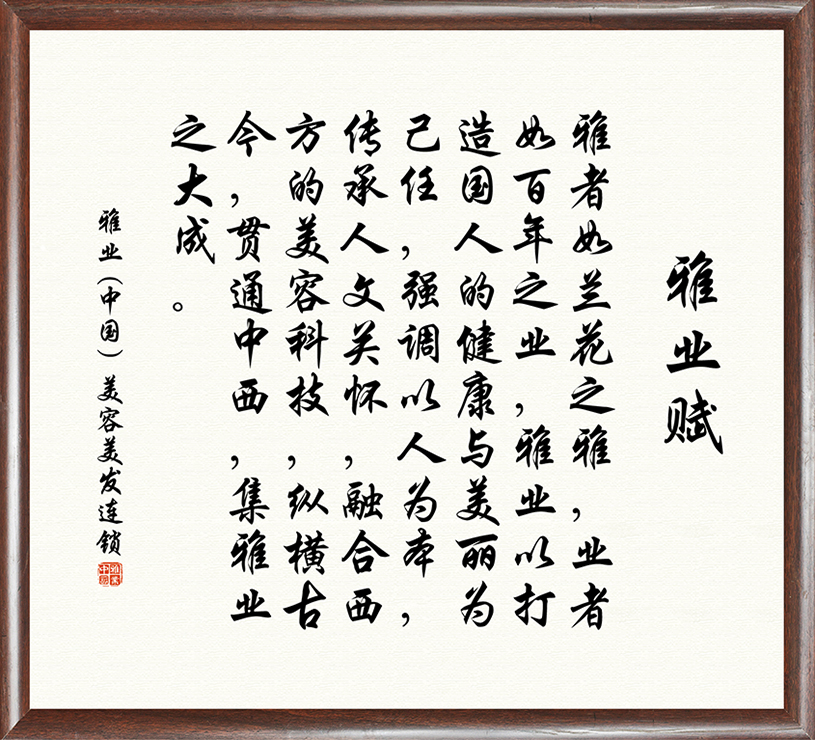 雅业赋
雅者如兰花之雅，业者
如百年之业，雅业以打
造国人的健康与美丽为
己任，强调以人为本，
传承人文关怀，融合西
方的美容科技，纵横古
今，贯通中西，集雅业
之大成。
雅业（中国）美容美发连锁
雅业
中国